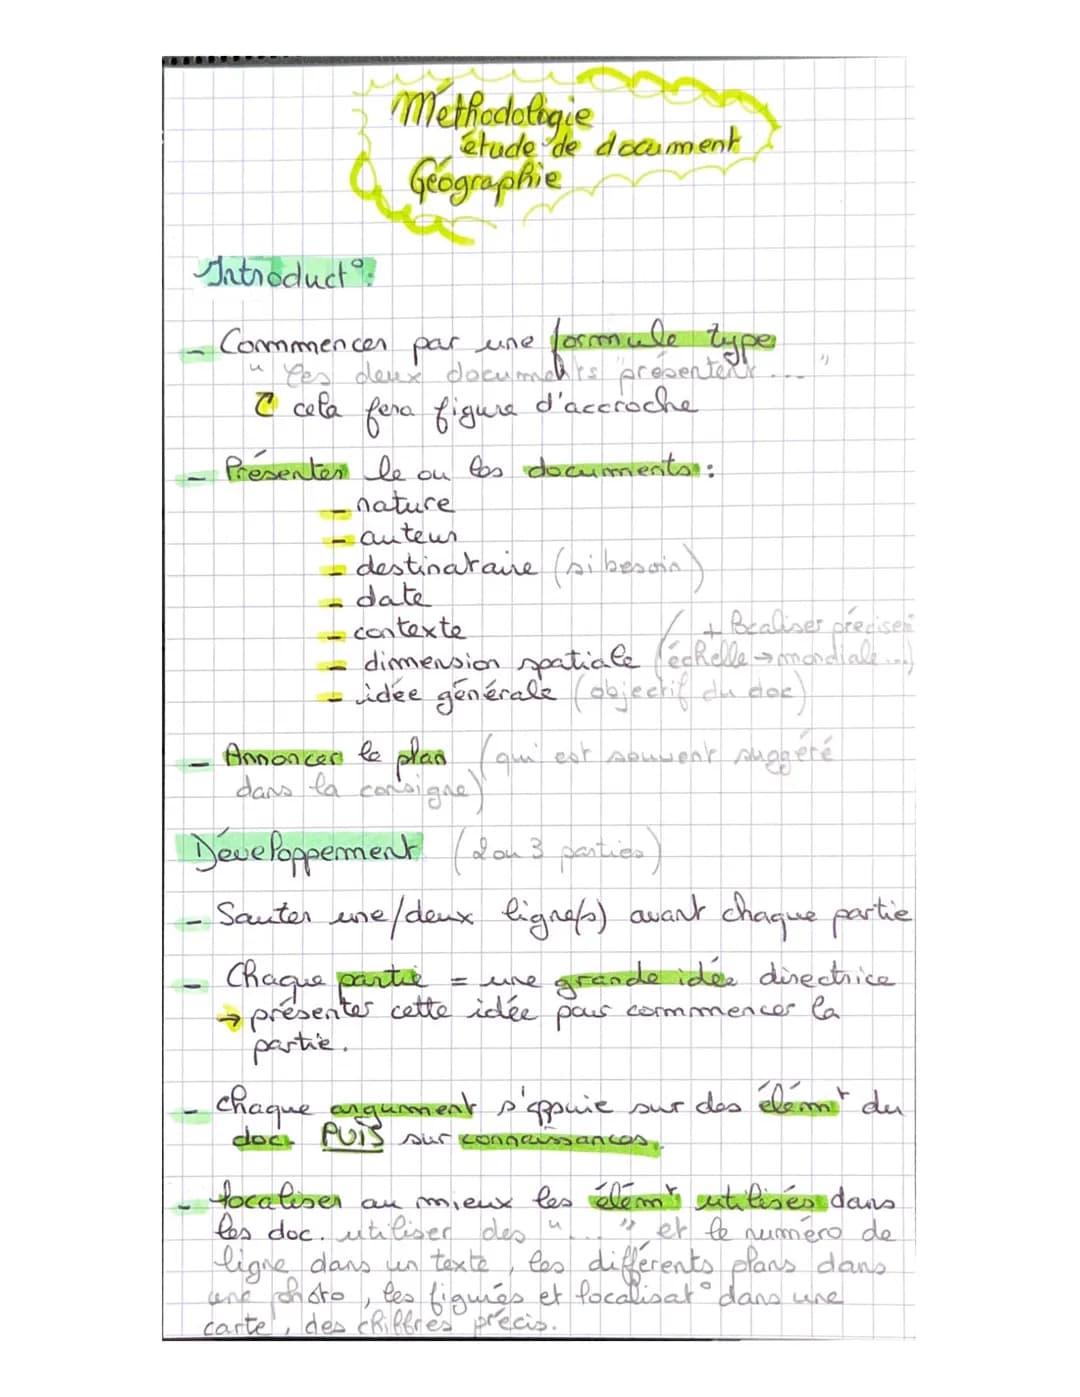 Méthodologie
étude de document
Géographie
Introduct°:
- Commencer par une formule type
" Les deux documents présentent .... "
cela fera figure d'accroche
- Présenter le ou les documents :
- nature
- auteur
- destinataire (si besoin)
- date
- contexte
- dimension spatiale (échelle → mondiale ...)
+ localiser précisem
- idée générale (objectif du doc)
- Annoncer le plan (qui est souvent suggéré
dans la consigne)
Développement (2 ou 3 parties)
- Sauter une/deux ligne(s) avant chaque partie
- Chaque partie = une grande idée directrice
→ présenter cette idée pour commencer la
partie.
- chaque argument s'appuie sur des élémt du
doc. PUIS sur connaissances.
- localiser au mieux les élémt utilisés dans
les doc. utiliser des " ... " et le numéro de
ligne dans un texte, les différents plans dans
une photo, les figurés et localisat° dans une
carte, des chiffres précis.